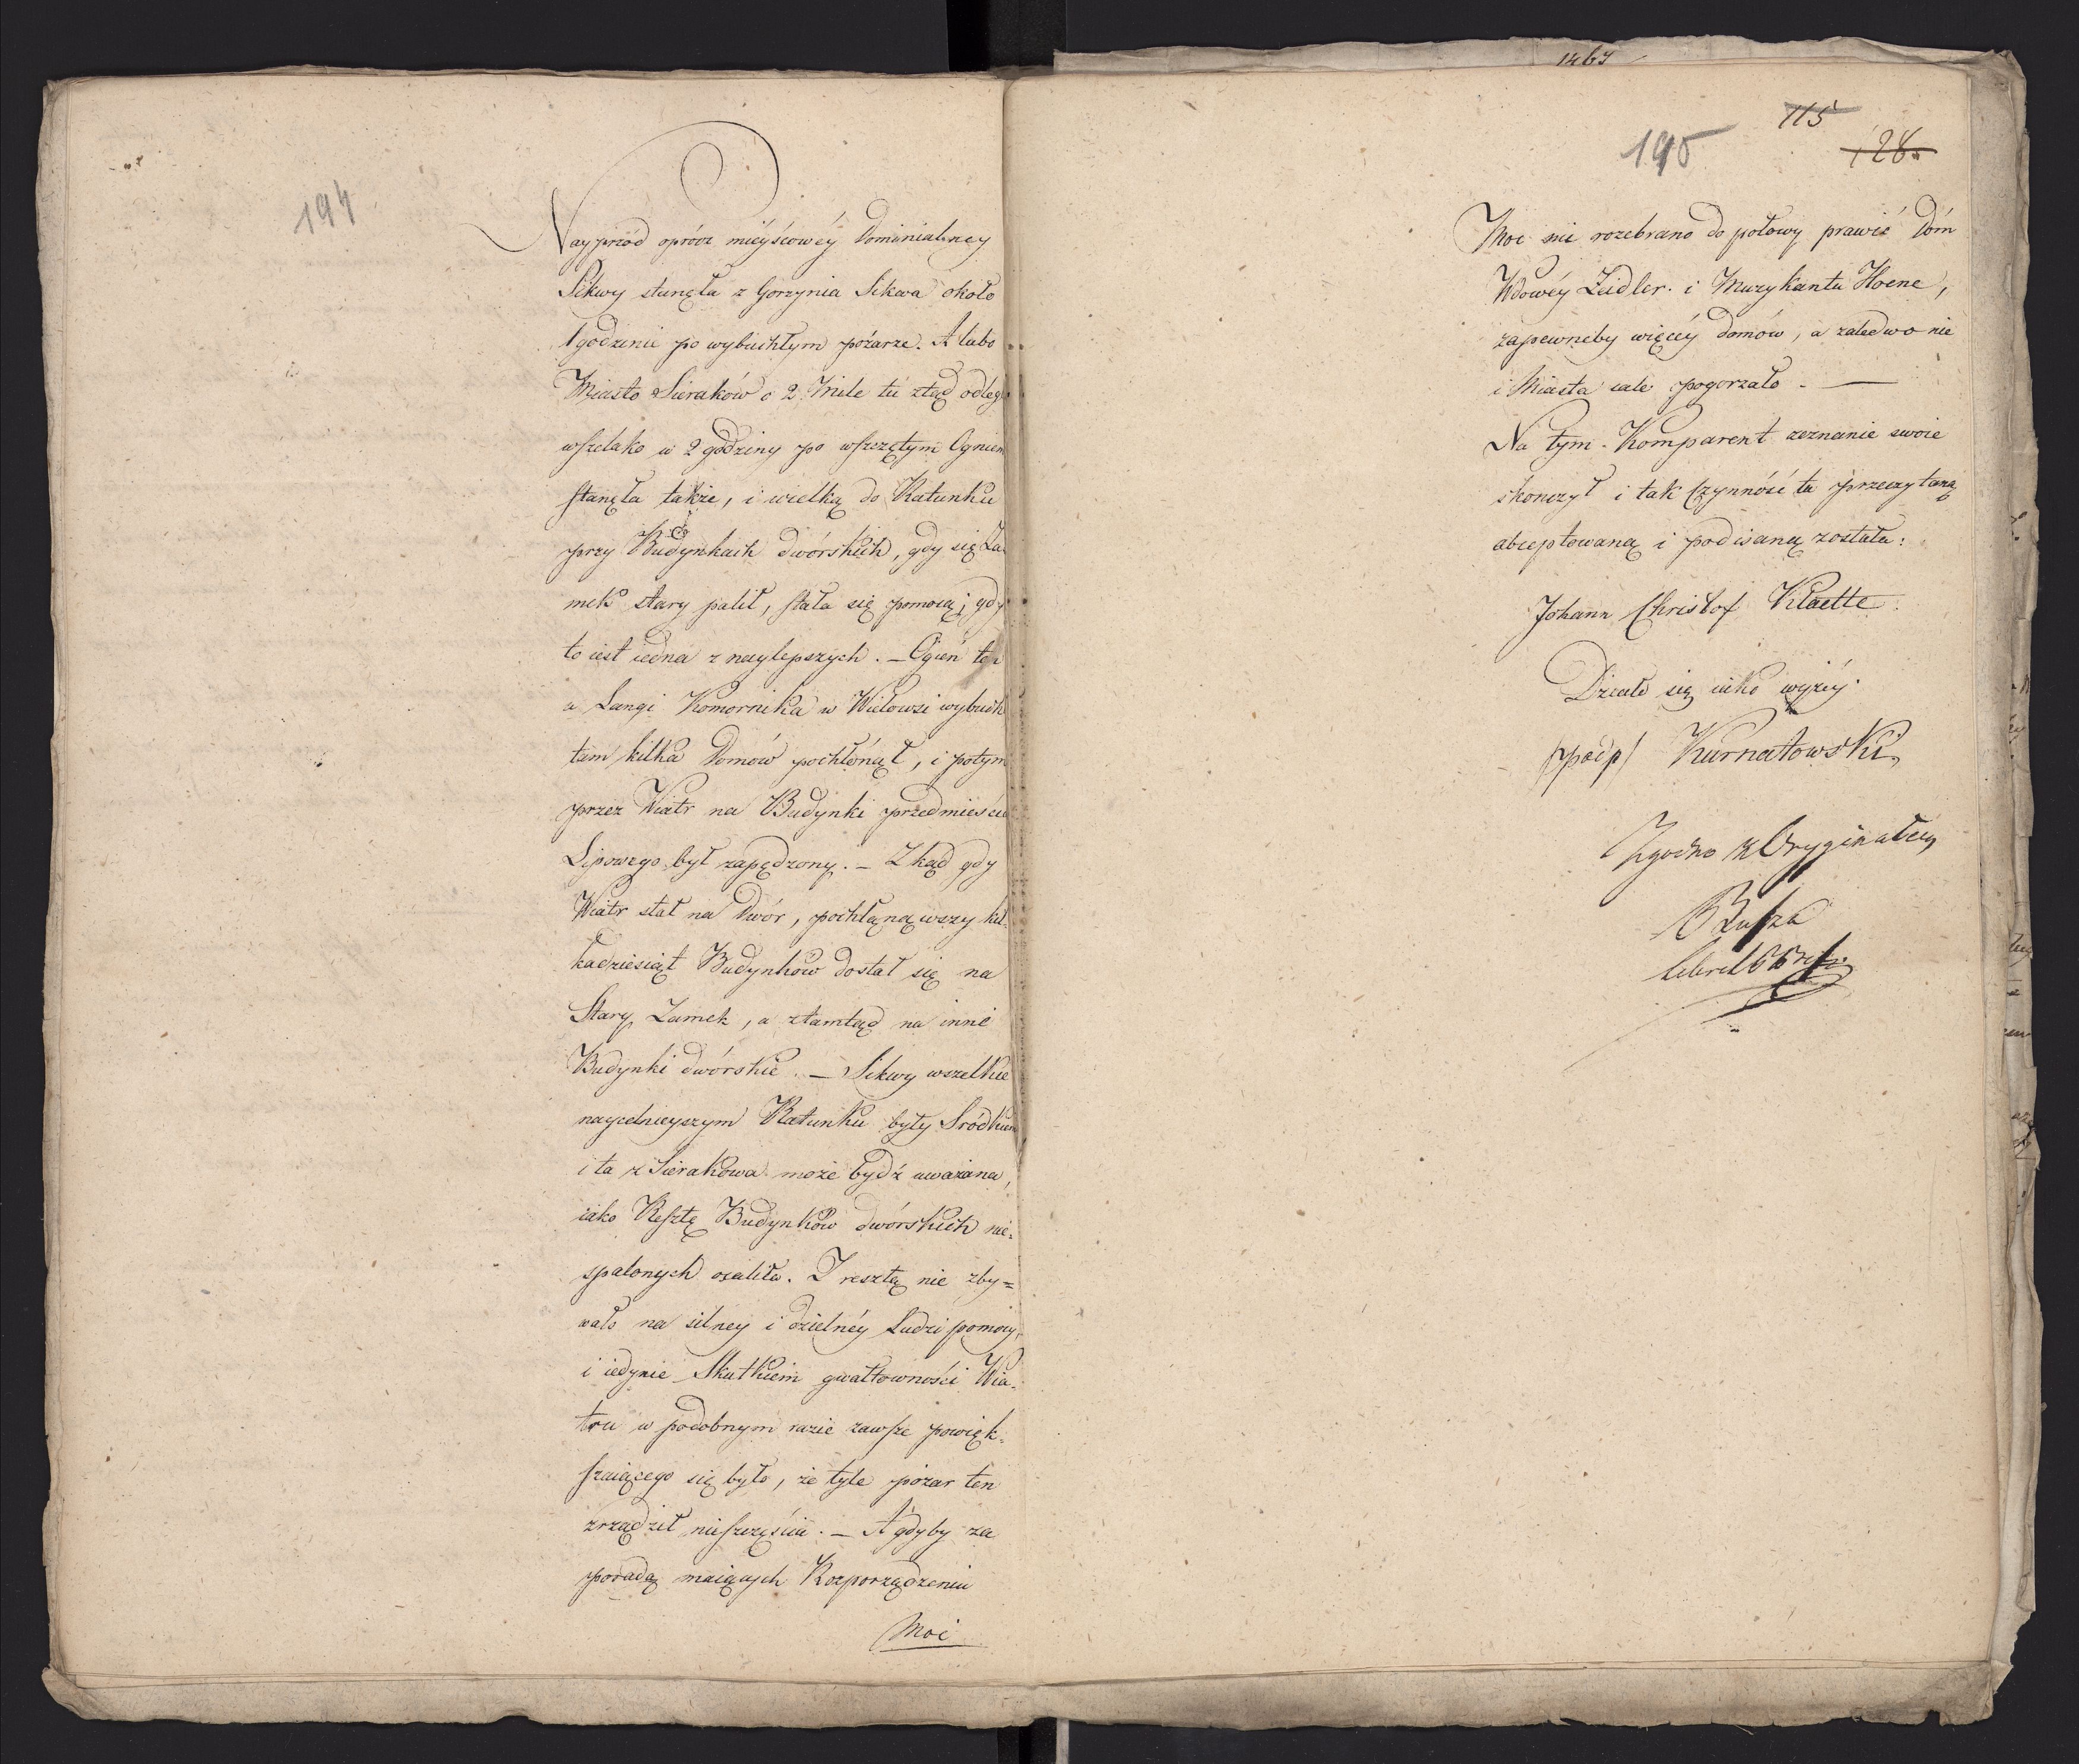 194
Nayprzód oprócz mieyscowéy Dominialney
Sikwy stanęła z Gorzynia Sikwa około
1 godzinie po wybuchłym pożarze. A lubo
Miasto Sieraków o 2 Mile tu ztąd odległ
wszelako w 2 godziny po wszczętym Ogniem
stanęła także, i wielką do Ratunku
przy Budynkach dwórskich, gdy się Za-
mek stary palił, stała się pomocą; gdy
to iest iedna z naylepszych. — Ogień ten
u Langi Komornika w Wielowsi wybuchł
tam kilka Domów pochłónął, i potym
przez Wiatr na Budynki przedmieścia
Lipowego był zapędzony. — Zkąd gdy
Wiatr stał na Dwór, pochłanąwszy kil-
kadziesiąt Budynków dostał się na
Stary Zamek, a ztamtąd na inne
Budynki dwórskie. — Sikwy wszelkie
naycelnieyszym Ratunku były Sródkiem
i ta z Sierakowa może bydź uważana,
iako Resztę Budynków dwórskich nie-
spalonych ocaliła. Z resztą nie zby=
wało na silney i dzielnéy Ludzi pomocy,
i iedynie Skutkiem gwałtowności Wia-
tru w podobnym razie zawsze powięk-
szaiącego się było, że tyle pożar ten
zrządził nieszczęścia. — A gdyby za
poradą maiących Rozporządzenia
Moc
1467
115
195
128.
Moc nie rozebrano do połowy prawie Dóm
Wdowéy Zeidler. i Muzykanta Hoene,
zapewneby więcéy domów, a zaledwo nie
i Miasta cale pogorzało. —
Na tym. Komparent zeznanie swoie
skonczył i tak Czynność ta przeczytaną
akceptowaną i podisaną została:
Johann Christof Klaette.
Działo się iako wyżéy.
/podp/ Kurnatowski,
Zgodno z Oryginałem